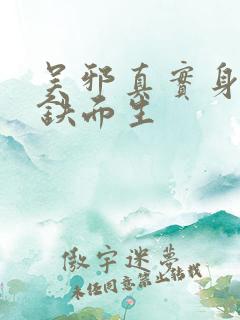 吴邪真實身
鈌而生
傲宇迷夢
未经同意禁止转载